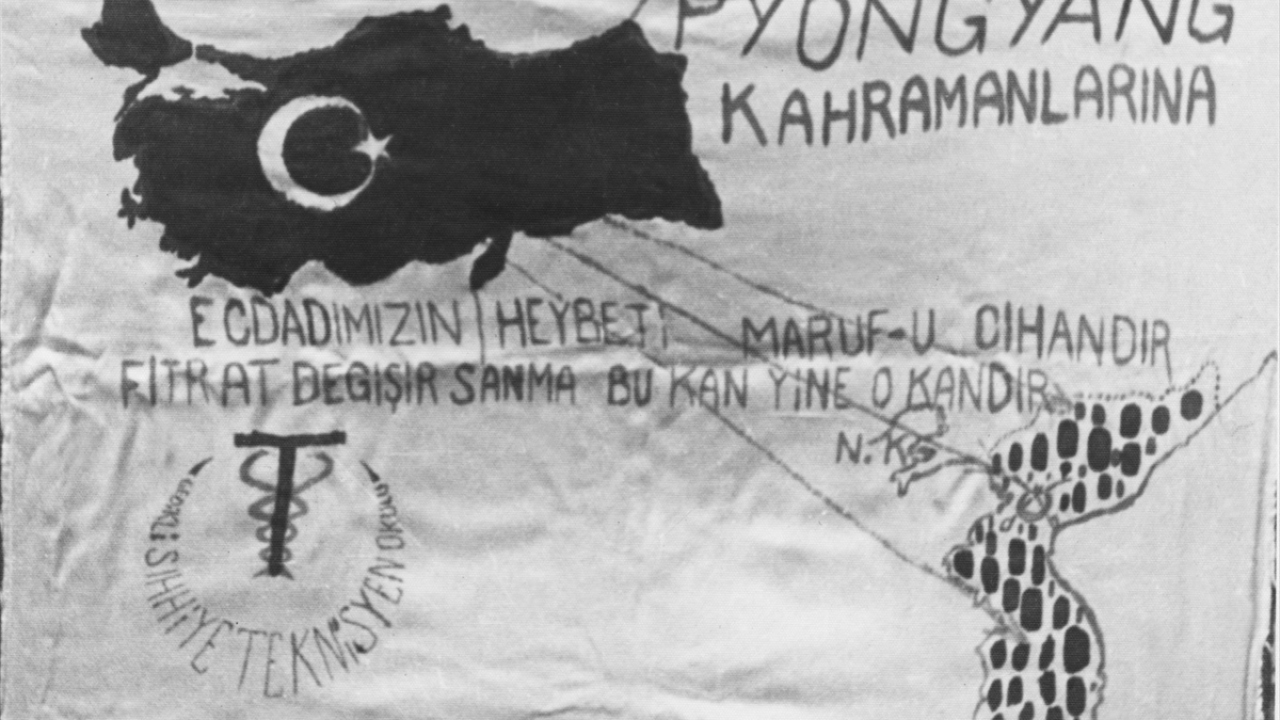 PYONGYANG
KAHRAMANLARINA
ECDADİMİZIN HEYBETİ MARUF-U CİHANDIR
FİTRAT DEGIŞİR SANMA BU KAN YİNE O KANDIR
N.K
SIHHİYE TEKNİSYEN OKULU